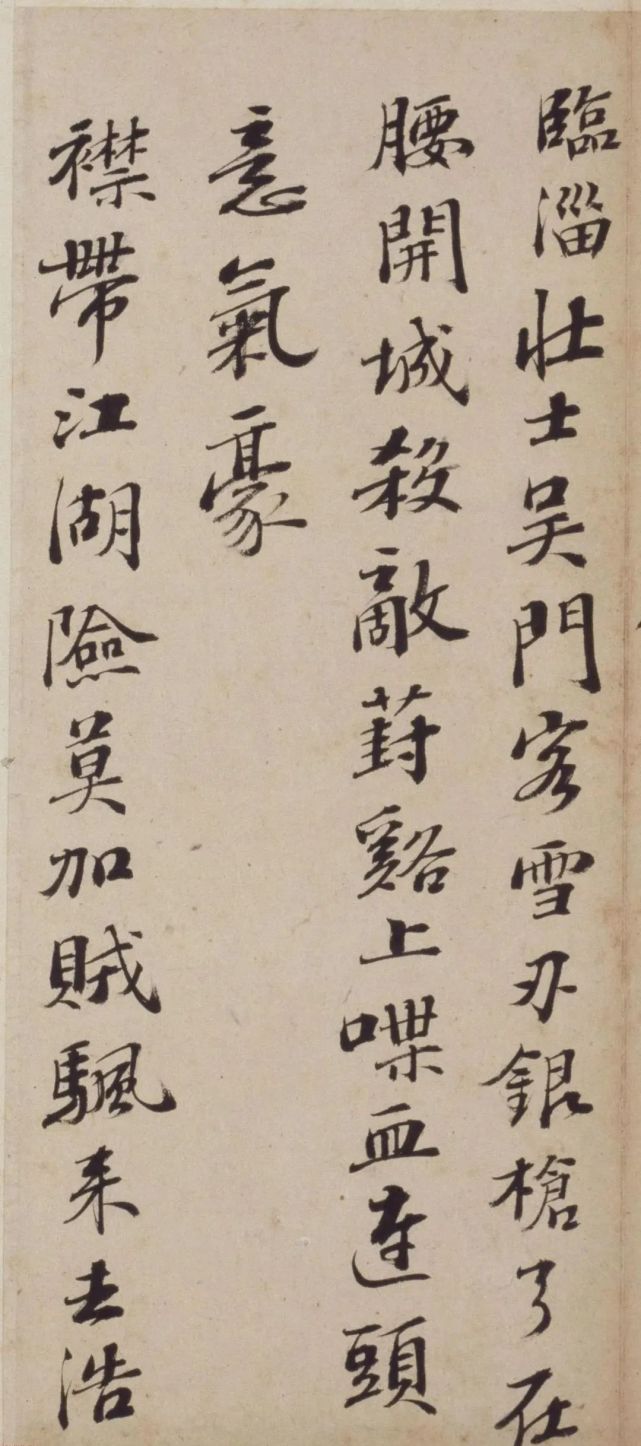 臨淄壯士吳門客雪刃銀槍弓在
腰開城殺敵葑谿上喋血連頭
意氣豪
襟帶江湖險莫加賊颿来去浩